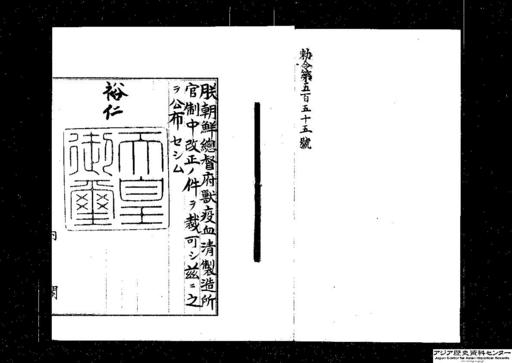 勅令第五百五十五號
朕朝鮮總督府獸疫血清製造所
官制中改正ノ件ヲ裁可シ茲ニ之
ヲ公布セシム
裕仁
天皇
御璽
内閣
アジア歴史資料センター
Japan Center for Asian Historical Records